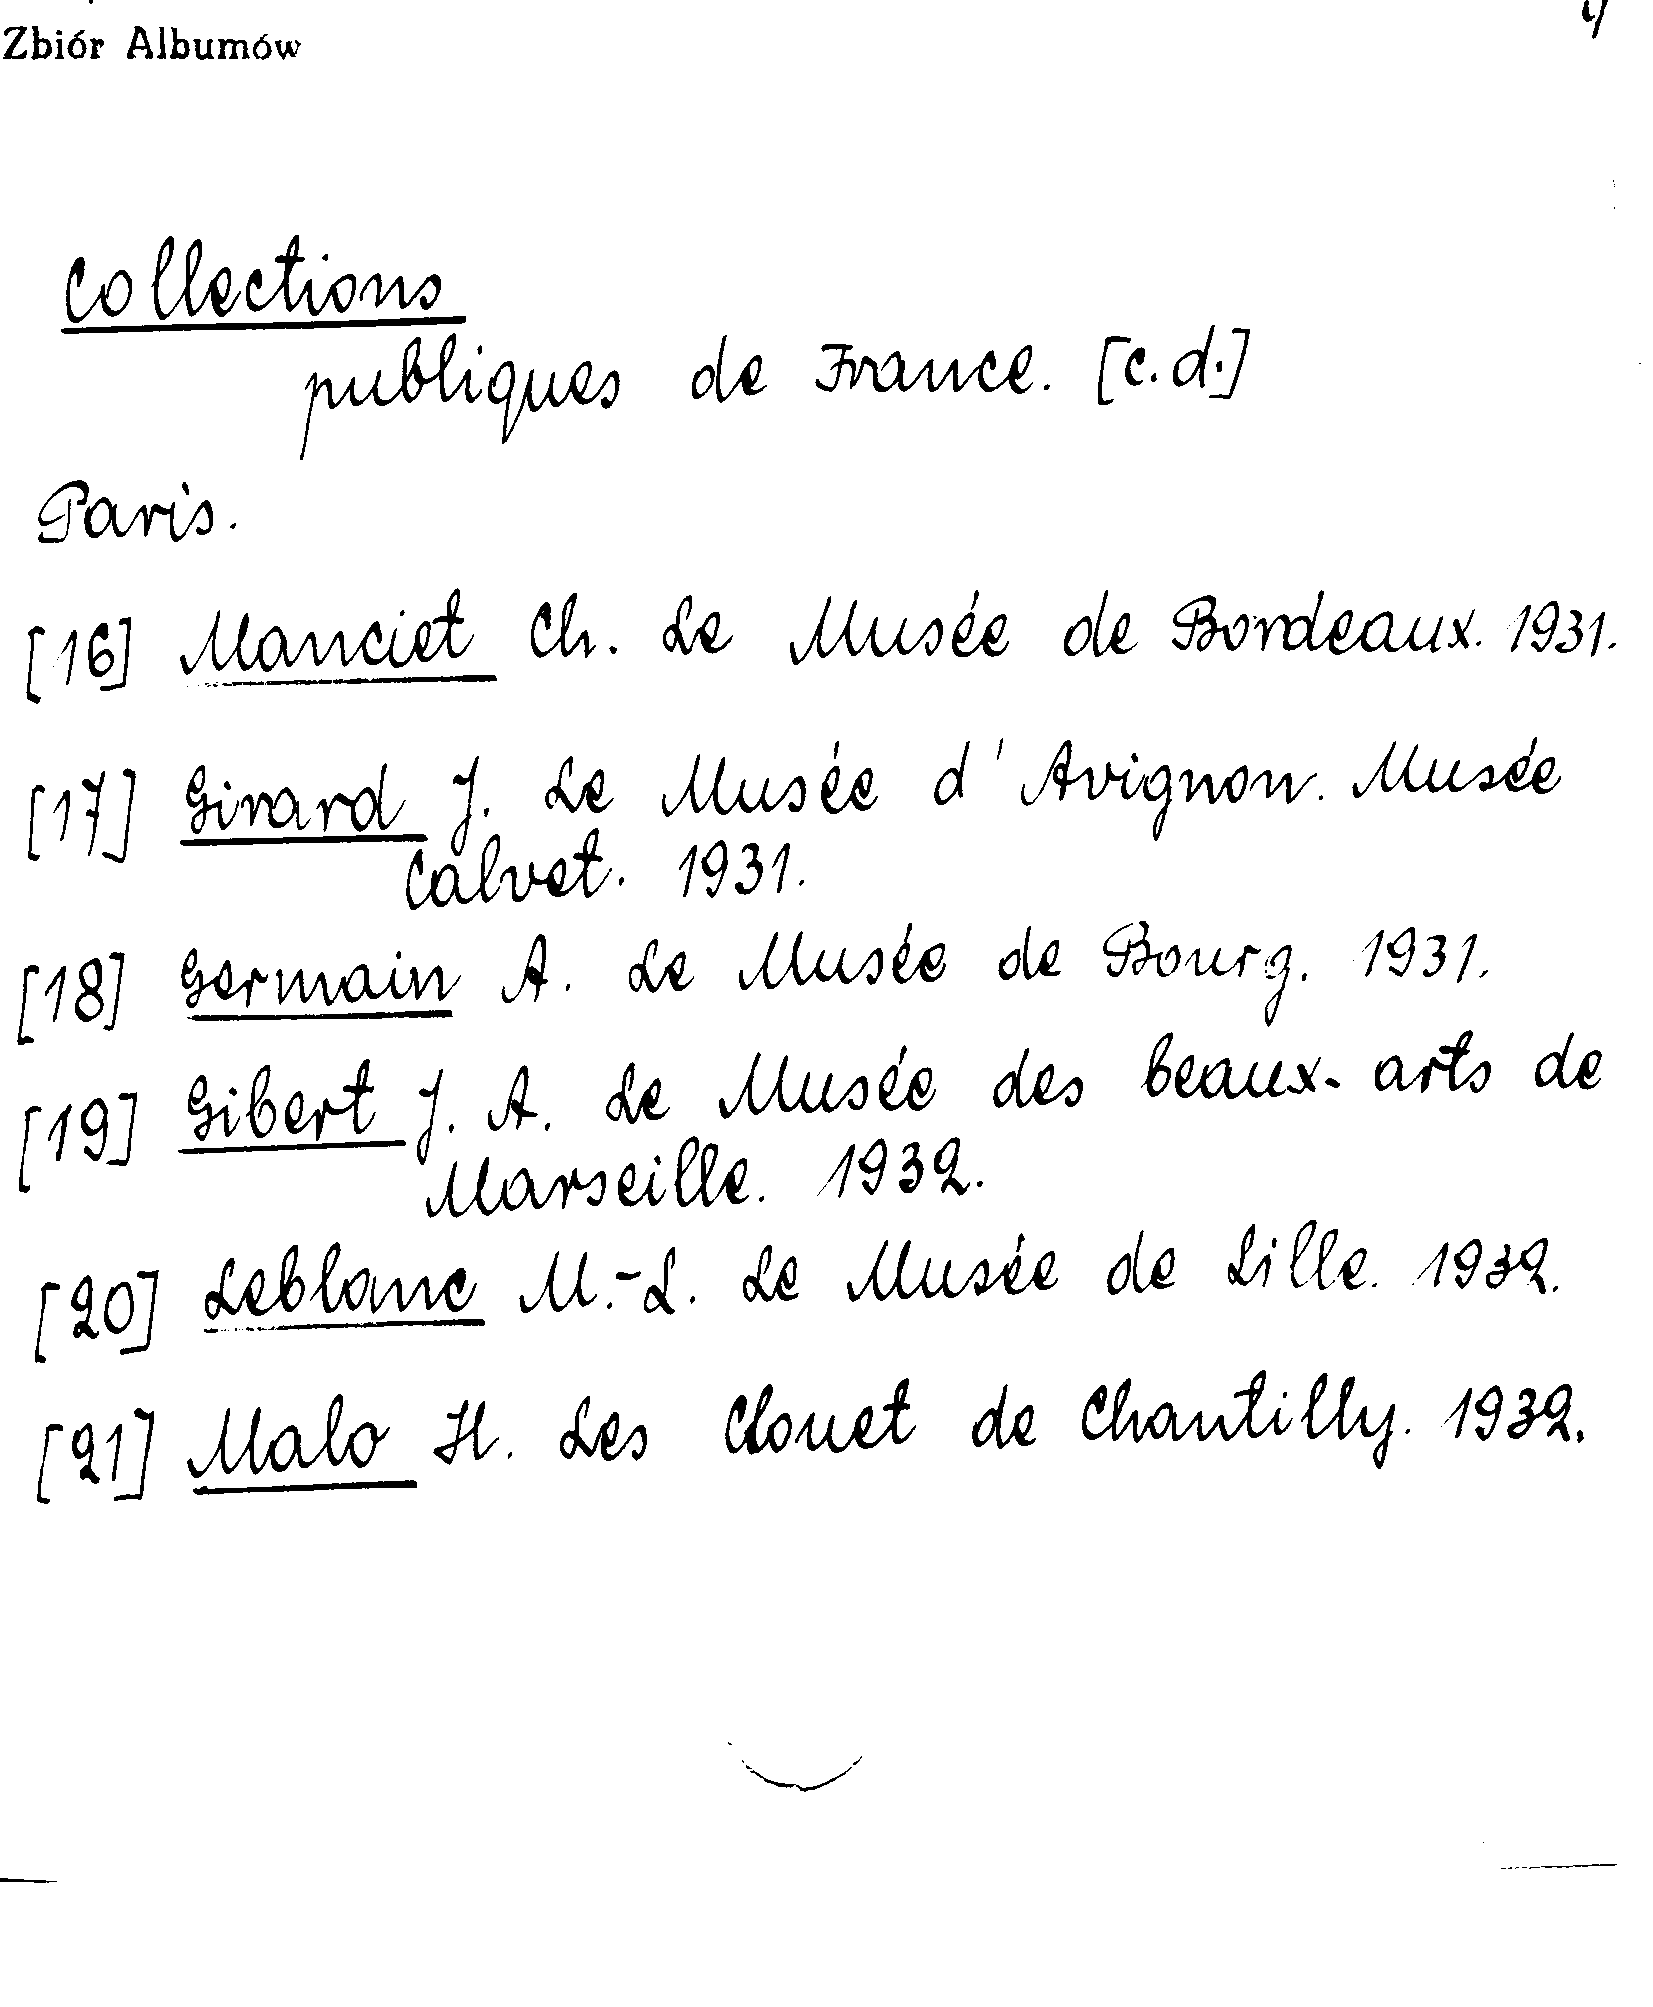 Zbiór Albumów
Collections
publiques de France. [c.d.]
Paris.
[16] Manciet Ch. Le Musée de Bordeaux. 1931.
[17] Girard J. Le Musée d'Avignon. Musée
Calvet. 1931.
[18] Germain A. Le Musée de Bourg. 1931.
[19] Gibert J. A. Le Musée des beaux-arts de
Marseille. 1932.
[20] Leblanc M.-L. Le Musée de Lille. 1932.
[21] Malo H. Les Clouet de Chantilly. 1932.